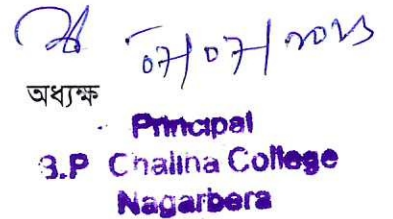 07/07/2023
অধ্যক্ষ
Principal
B.P Chaliha College
Nagarbera